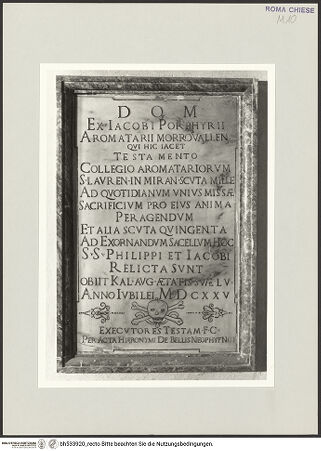 ROMA CHIESE
M10
D O M
EX IACOBI PORPHYRII
AROMATARII MORROVALLEN
QVI HIC IACET
TESTAMENTO
COLLEGIO AROMATARIORVM
S·LAVREN·IN MIRAN·SCVTA MILLE
AD QVOTIDIANVM VNIVS MISSÆ
SACRIFICIVM PRO EIVS ANIMA
PERAGENDVM
ET ALIA SCVTA QVINGENTA
AD EXORNANDVM SACELLVM HOC
S·S·PHILIPPI ET IACOBI
RELICTA SVNT
OBIIT KAL·AVG·ÆTATIS SVÆ LV
ANNO IVBILEI MDCXXV
EXECVTORES TESTAM·F·C·
PER ACTA HIERONYMI DE BELLIS
bh539920_recto Bitte beachten Sie die Nutzungsbedingungen.